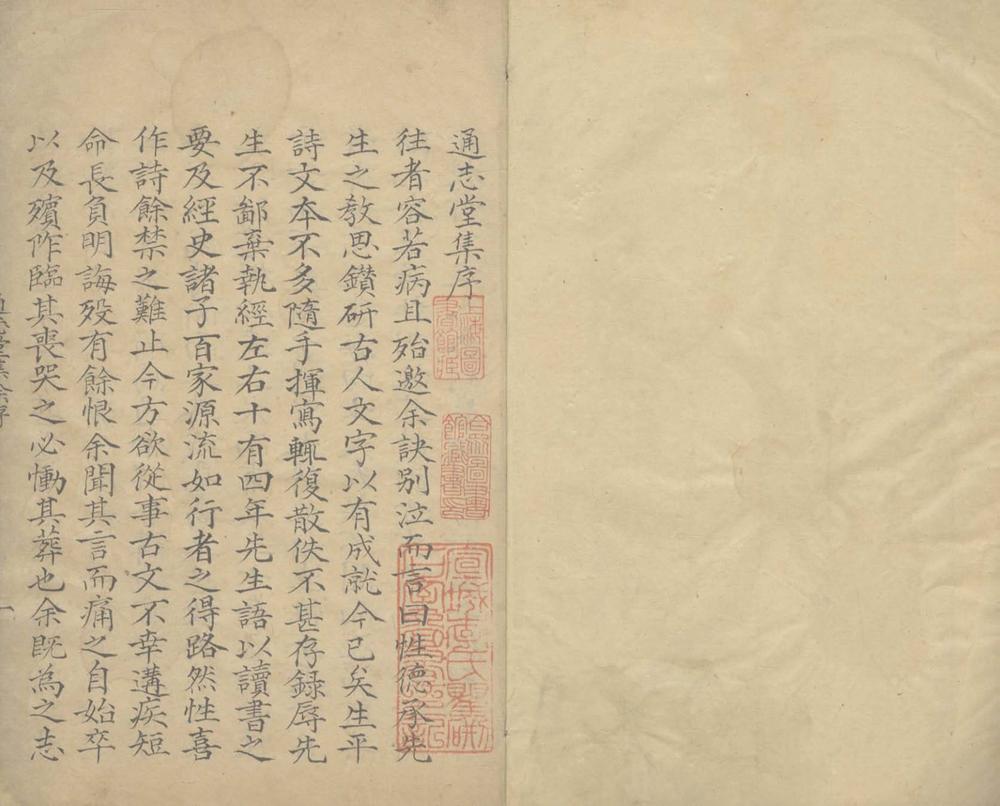 通志堂集序
往者容若病且殆邀余訣別泣而言曰性德承先
生之教思鑽研古人文字以有成就今已矣生平
詩文本不多隨手揮寫輒復散佚不甚存錄辱先
生不鄙棄執經左右十有四年先生語以讀書之
要及經史諸子百家源流如行者之得路然性喜
作詩餘禁之難止今方欲從事古文不幸遘疾短
命長負明誨歿有餘恨余聞其言而痛之自始卒
以及殯阼臨其喪哭之必慟其葬也余既為之志
上海圖
書館藏
合眾圖書
館藏書印